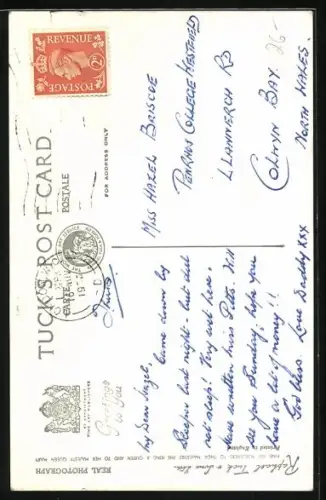 POSTAGE REVENUE
2D
TUCK'S POST CARD
CARTE POSTALE
FOR ADDRESS ONLY
REAL PHOTOGRAPH
Printed in England
Raphael Tuck & Sons Ltd.
Greetings
to You
26-
Miss Hazel Briscoe
Penrhos College Hestfield
Llannerch Rd
Colwyn Bay.
North Wales.
Thurs
My Dear Hazel,
Came down by
Sleeper last night - but did
not sleep! Very wet here,
have written Miss Pitts. Will
see you Sunday; hope you
have a lot of money!!
God bless. Love Daddy xxx